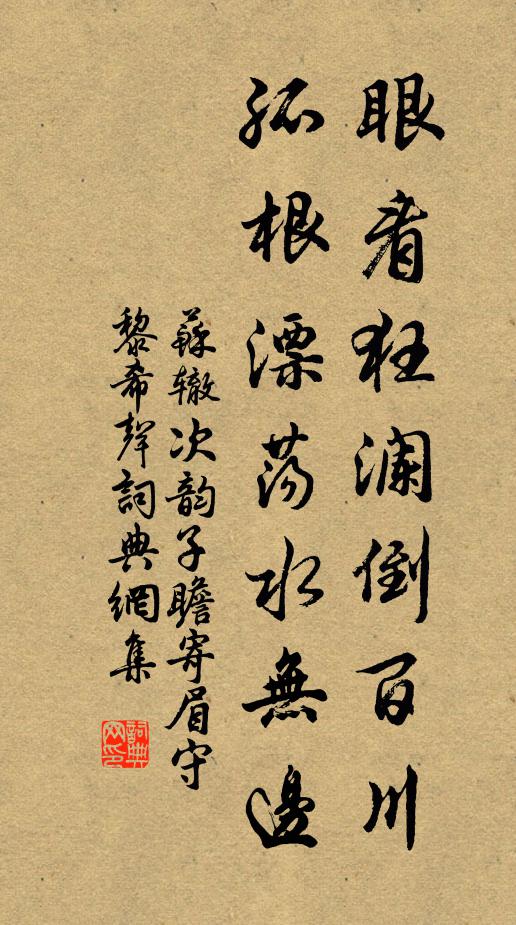 眼看狂瀾倒百川
孤根漂荡水無邊
蘇辙次韵子瞻寄眉守
黎希聲詞典網集
詞典
网印